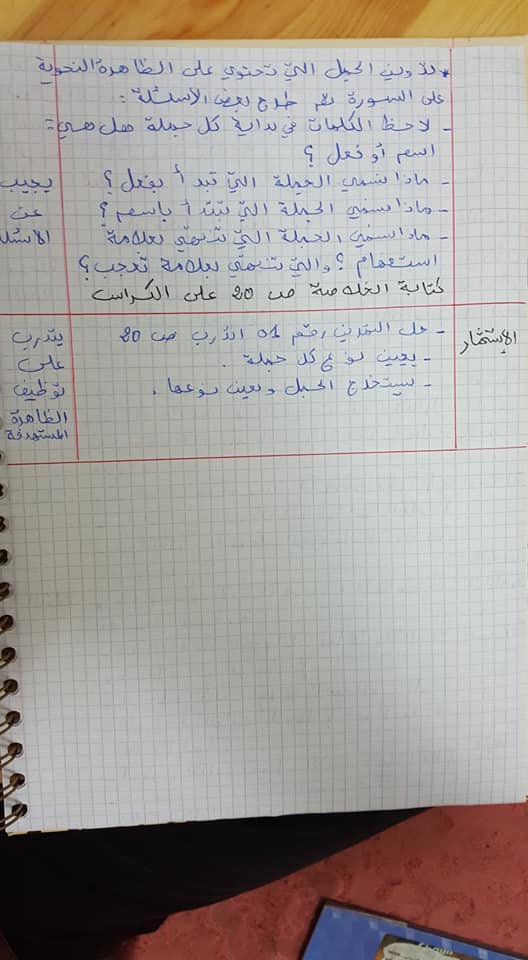 * تدوين الجمل التي تحتوي على الظاهرة النحوية
على السبورة ثم طرح بعض الأسئلة :
- لاحظ الكلمات في بداية كل جملة هل هي :
اسم أو فعل ؟
- ماذا نسمي الجملة التي تبدأ بفعل ؟
- ماذا نسمي الجملة التي تبتدأ باسم ؟
- ماذا نسمي الجملة التي تنتهي بعلامة
استفهام ؟ والتي تنتهي بعلامة تعجب ؟
كتابة الخلاصة ص 20 على الكراس
يجيب
عن
الأسئلة
الإستثمار
- حل التمرين رقم 01 أتدرب ص 20
- يعين نوع كل جملة .
- يستخرج الجمل ويعين نوعها .
يتدرب
على
توظيف
الظاهرة
المستهدفة